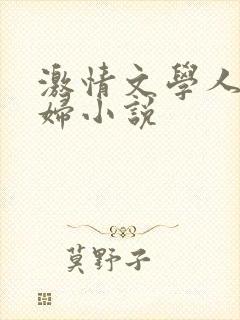 激情文學人
婦小說
莫野子